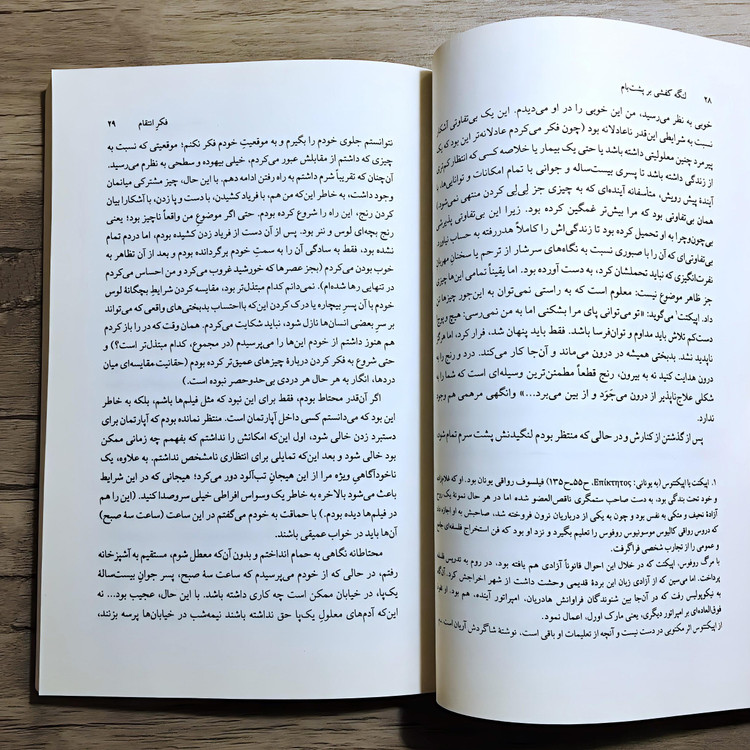 ۲۸ لنگه کفشی بر پشت‌بام
خوبی به نظر می‌رسید، من این خوبی را در او می‌دیدم. این یک بی‌تفاوتی آشکار
نسبت به شرایطی این‌قدر ناعادلانه بود (چون فکر می‌کردم عادلانه‌تر این بود که یک
پیرمرد چنین معلولیتی داشته باشد یا حتی یک بیمار یا خلاصه کسی که انتظار کمتری
از زندگی داشته باشد تا پسری بیست‌ساله و جوانی با تمام امکانات و توانایی‌ها،
آیندهٔ پیش رویش، متأسفانه آینده‌ای که به چیزی جز لی‌لی کردن منتهی نمی‌شود).
همان بی‌تفاوتی بود که مرا بیش‌تر غمگین کرده بود. زیرا این بی‌تفاوتی پذیرشی
بی‌چون‌وچرا به او تحمیل کرده بود تا زندگی‌اش را کاملاً هدررفته به حساب نیاورد
بی‌تفاوتی‌ای که آن را با صبوری نسبت به نگاه‌های سرشار از ترحم یا سخنان مهربان
نفرت‌انگیزی که نباید تحملشان کرد، به دست آورده بود. اما یقیناً تمامی این‌ها چیزی
جز ظاهر موضوع نیست: معلوم است که به راستی نمی‌توان به این‌جور چیزها تن
داد. اپیکت۱ می‌گوید: «تو می‌توانی پای مرا بشکنی اما به من نمی‌رسی: هیچ و پوچ
دست‌کم تلاش باید مداوم و توان‌فرسا باشد. فقط باید پنهان شد، فرار کرد، اما هرگز
ناپدید نشد. بدبختی همیشه در درون می‌ماند و آن‌جا کار می‌کند. درد و رنج را به
درون هدایت کنید نه به بیرون، رنج قطعاً مطمئن‌ترین وسیله‌ای است که شما را به
شکلی علاج‌ناپذیر از درون می‌جَوَد و از بین می‌برد...» وانگهی مرهمی هم وجود
ندارد.
پس از گذشتن از کنارش و در حالی که منتظر بودم لنگیدنش پشت سرم تمام شود،
۱. اپیکت یا اپیکتتوس (به یونانی: Επίκτητος، ح۵۵ـ ح۱۳۵) فیلسوف رواقی یونان بود. او که غلام‌زاده
و خود تحت بندگی بود، به دست صاحب ستمگری ناقص‌العضو شده اما در هر حال نمونهٔ یک روح
آزادهٔ نجیف و متکی به نفس بود و چون به یکی از درباریان نرون فروخته شد، صاحبش به او اجازه داد
که دروس رواقی کالیوس موسونیوس روفوس را تعلیم بگیرد و نزد او بود که فن استخراج فلسفه‌ای جامع
و عمومی را از تجارب شخصی فراگرفت.
با مرگ روفوس، اپیکت که در خلال این احوال قانوناً آزادی هم یافته بود، در روم به تدریس فلسفه
پرداخت. اما دمیسین که از آزادی زبان این بردهٔ قدیمی وحشت داشت از شهر اخراجش کرد. آنگاه
به نیکوپولیس رفت که در آن‌جا بین شنوندگان فراوانش هادریان، امپراتور آینده، هم بود. او نفوذ
فوق‌العاده‌ای بر امپراتور دیگری، یعنی مارک اورل، اعمال نمود.
از اپیکتتوس اثر مکتوبی در دست نیست و آنچه از تعلیمات او باقی است، نوشتهٔ شاگردش آریان است...
فکر انتقام ۲۹
نتوانستم جلوی خودم را بگیرم و به موقعیتِ خودم فکر نکنم؛ موقعیتی که نسبت به
چیزی که داشتم از مقابلش عبور می‌کردم، خیلی بیهوده و سطحی به نظرم می‌رسید.
آن‌چنان که تقریباً شرم داشتم به راه رفتن ادامه دهم. با این حال، چیز مشترکی میانمان
وجود داشت، به خاطر این‌که من هم، با فریاد کشیدن، دست و پا زدن، با آشکارا بیان
کردن رنج، این راه را شروع کرده بودم. حتی اگر موضوعِ من واقعاً ناچیز بود؛ یعنی
رنج بچه‌ای لوس و ننر بود. پس از آن دست از فریاد زدن کشیده بودم، اما دردم تمام
نشده بود، فقط به سادگی آن را به سمتِ خودم برگردانده بودم و بعد از آن تظاهر به
خوب بودن می‌کردم (بجز عصرها که خورشید غروب می‌کرد و من احساس می‌کردم
در تنهایی رها شده‌ام). نمی‌دانم کدام مبتذل‌تر بود، مقایسه کردن شرایطِ بچگانهٔ لوس
خودم با آن پسرِ بیچاره یا درک کردن این‌که بااحتساب بدبختی‌های واقعی که می‌تواند
بر سرِ بعضی انسان‌ها نازل شود، نباید شکایت می‌کردم. همان وقت که در را باز کردم
هم هنوز داشتم از خودم این‌ها را می‌پرسیدم (در مجموع، کدام مبتذل‌تر است؟) و
حتی شروع به فکر کردن دربارهٔ چیزهای عمیق‌تر کرده بودم (حقانیت مقایسه‌ای میان
دردها، انگار به هر حال هر دردی بی‌حدوحصر نبوده است.)
اگر آن‌قدر محتاط بودم، فقط به خاطر این نبود که مثل فیلم‌ها باشم، بلکه به خاطر
این بود که می‌دانستم کسی داخل آپارتمان است. منتظر نمانده بودم که آپارتمان برای
دستبرد زدن خالی شود، اول این‌که امکانش را نداشتم که بفهمم چه زمانی ممکن
بود خالی شود، و بعد این‌که تمایلی برای انتظاری نامشخص نداشتم. به علاوه، یک
ناخودآگاهیِ ویژه مرا از این هیجانِ تب‌آلود دور می‌کرد؛ هیجانی که در این شرایط
باعث می‌شود بالاخره به خاطر یک وسواس افراطی خیلی سروصدا کنید. (این را هم
در فیلم‌ها دیده بودم.) با حماقت به خودم می‌گفتم در این ساعت (ساعت سهٔ صبح)
آن‌ها باید در خواب عمیقی باشند.
محتاطانه نگاهی به حمام انداختم و بدون آن‌که معطل شوم، مستقیم به آشپزخانه
رفتم، در حالی که از خودم می‌پرسیدم که ساعت سهٔ صبح، پسر جوانِ بیست‌سالهٔ
یک‌پا، در خیابان ممکن است چه کاری داشته باشد. با این حال، عجیب بود... نه
این‌که آدم‌های معلولِ یک‌پا حق نداشته باشند نیمه‌شب در خیابان‌ها پرسه بزنند،